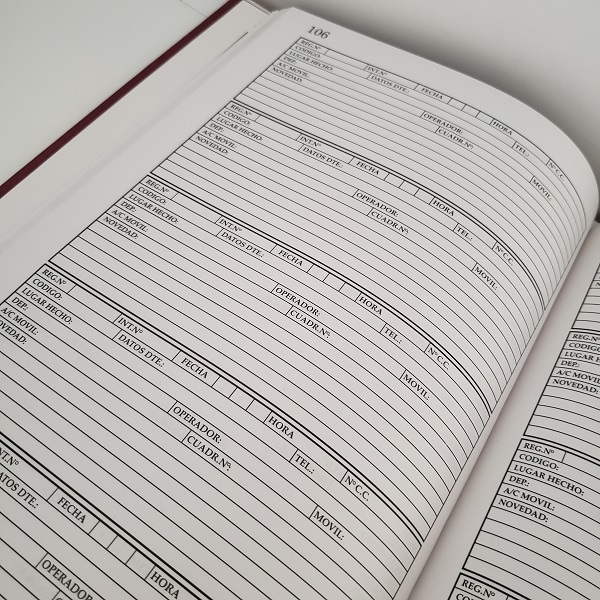 106
REG.Nº INT.Nº FECHA HORA Nº C.C.
CODIGO: DATOS DTE.: TEL.:
LUGAR HECHO:
DEP.: OPERADOR:
A/C MOVIL: CUADR.Nº: MOVIL:
NOVEDAD:
REG.Nº INT.Nº FECHA HORA Nº C.C
CODIGO: DATOS DTE.: TEL.:
LUGAR HECHO:
DEP.: OPERADOR:
A/C MOVIL: CUADR.Nº: MOVIL:
NOVEDAD:
REG.Nº INT.Nº FECHA HORA Nº C.C.
CODIGO: DATOS DTE.: TEL.:
LUGAR HECHO:
DEP.: OPERADOR:
A/C MOVIL: CUADR.Nº: MOVIL:
NOVEDAD:
REG.Nº INT.Nº FECHA HORA Nº C.C.
CODIGO: DATOS DTE.: TEL.:
LUGAR HECHO:
DEP.: OPERADOR:
A/C MOVIL: CUADR.Nº: MOVIL:
NOVEDAD:
INT.Nº FECHA HORA
DATOS DTE.:
OPERADOR:
REG.Nº
CODIGO:
LUGAR H
DEP.:
A/C MOVIL
NOVEDAD:
REG.Nº
CODIGO:
LUGAR HECHO:
DEP.:
A/C MOVIL:
NOVEDAD:
REG.Nº